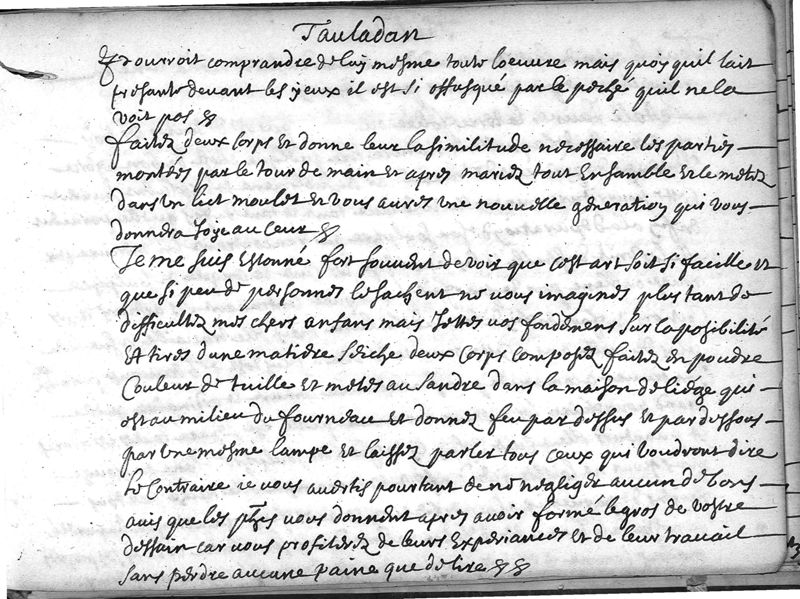 Tauladan
Pourroit comprandre de luy mesme toute loeuure mais quoy quil lait
presante deuant les yeux il est si offusqué par le peché quil ne la
voit pas
faites deux corps et donne leur la similitude nécessaire les parties
montées par le tour de main et apres mariez tout ensamble et le metez
dans un lict moulet et vous aures une nouuelle génération qui vous
donnera Joye au Ceur
Je me suis estonné fort souuent de voir que cest art soit si facille et
que si peu de personnes le sachent ne vous imagines plus tant de
difficultez mes chers anfans mais Jettes vos fondemens sur la posibilité
et tires dune matiere seiche deux corps composez faites en poudre
Couleur de tuille et metes au sandre dans la maison de liege qui
est au milieu du fourneau et donnez feu par dessus et par dessous
par une mesme lampe et laissez parler tous ceux qui voudront dire
le Contraire ie vous auertis pourtant de ne negliger aucun de bons
auis que les phes vous donnent apres auoir formé le gros de vostre
dessain car vous profiterez de leurs experiances et de leur trauail
sans perdre aucune paine que de lire